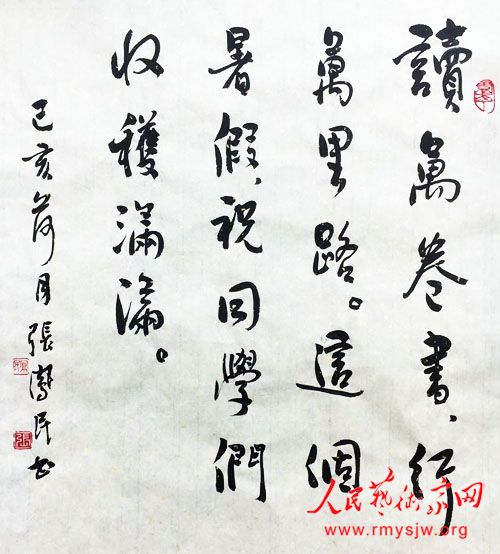 讀萬卷書、行
萬里路。這個
暑假,祝同學們
收穫滿滿。
己亥荷月 張濤民书
人民艺术家网
www.rmysjw.org